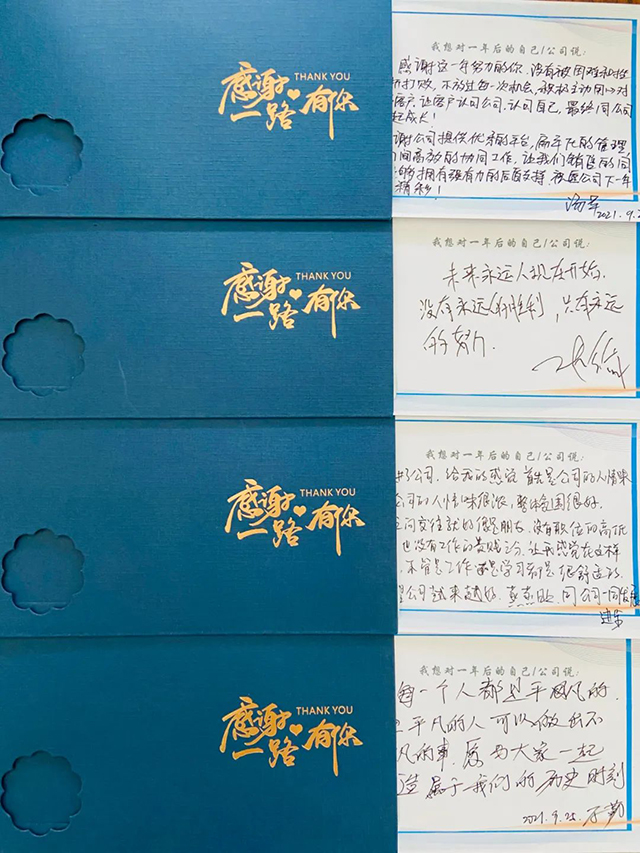 感谢一路有你
THANK YOU
我想对一年后的自己/公司说:
感谢这一年努力的你,没有被困难和挫
打败,不放过每一次机会,积极主动面对
客户,让客户认可公司,认可自己,最终同公司
起成长!
谢公司提供优秀的平台,扁平化的管理
间高效的协同工作,让我们销售的同
够拥有强有力的后盾支持,祝愿公司下一年
精彩!
2021.9.2
感谢一路有你
THANK YOU
我想对一年后的自己/公司说:
未来永远从现在开始.
没有永远的胜利,只有永远
的努力.
感谢一路有你
THANK YOU
我想对一年后的自己/公司说:
公司,给我的感觉首先是公司的人情味
公司的人情味很浓,整体氛围很好.
间交往就好像是朋友,没有职位的高低
也没有工作的贵贱之分,让我感觉在这样
不管是工作还是学习都是很舒适的
公司越来越好,蒸蒸日上,同公司一同发展
感谢一路有你
THANK YOU
我想对一年后的自己/公司说:
每一个人都是平凡的,
平凡的人可以做出不
凡的事.愿与大家一起
造属于我们的历史时刻
2021.9.25